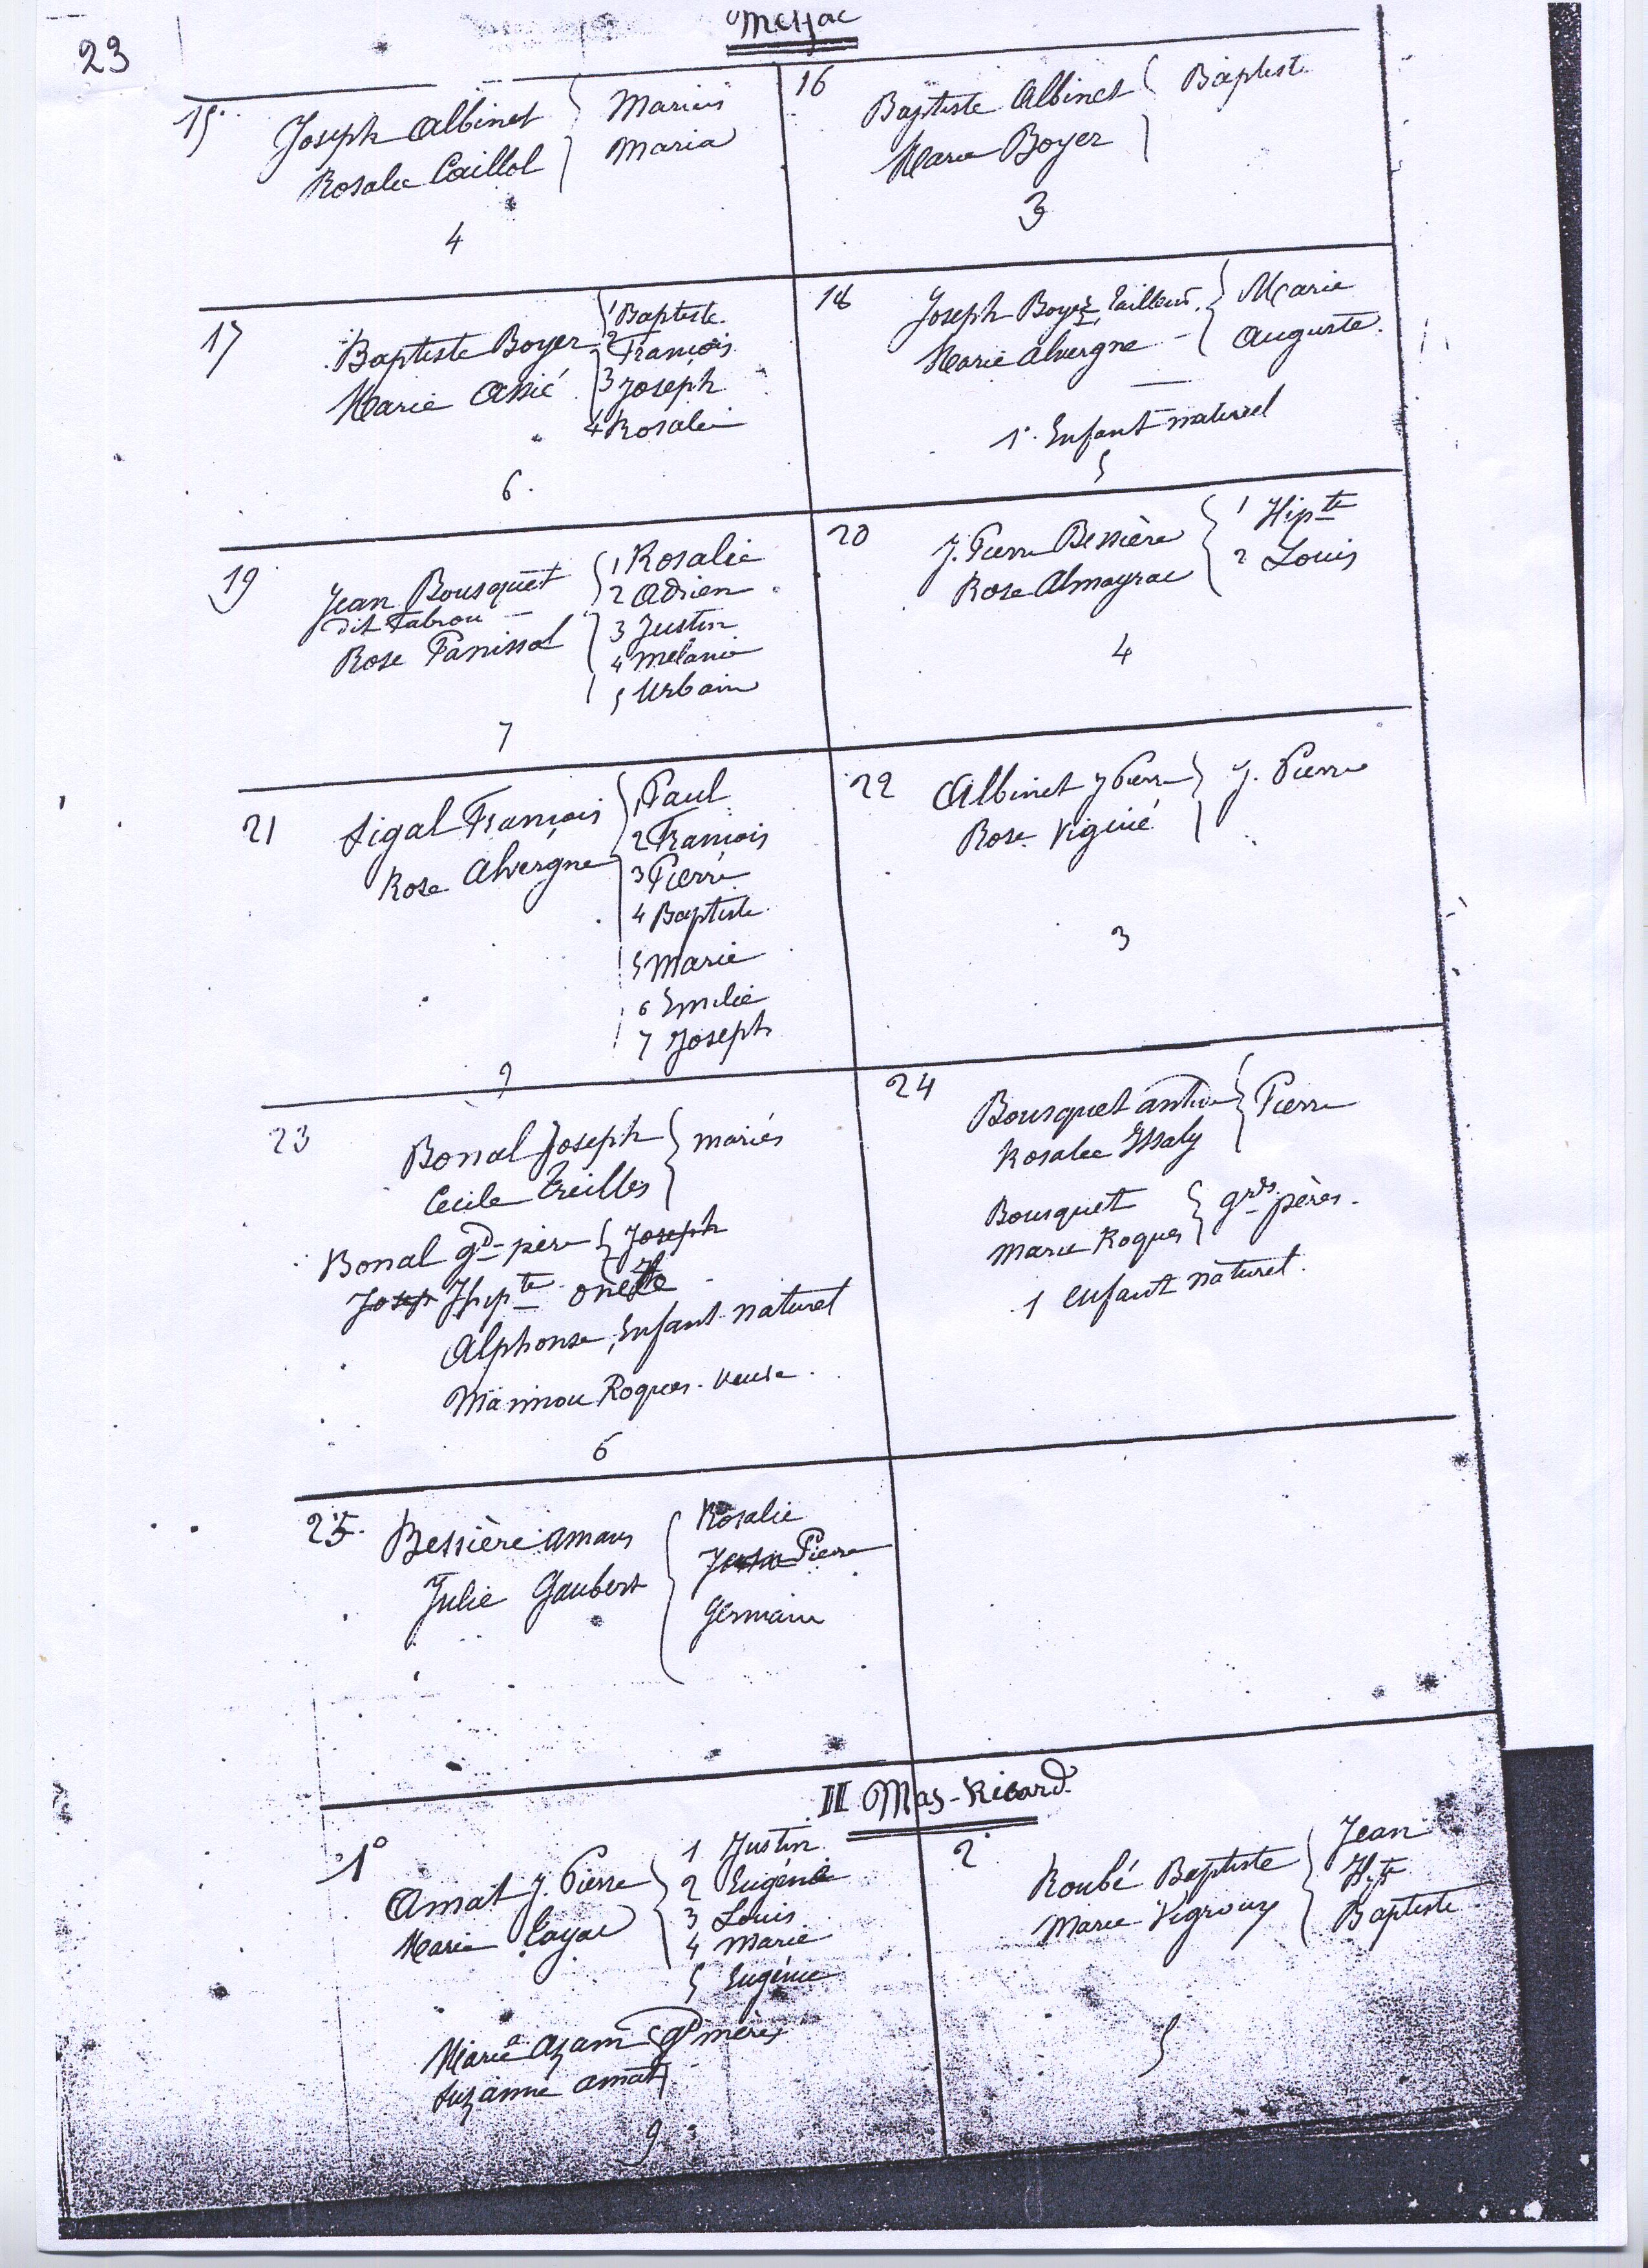 23
Meljac
15.
Joseph Albinet
Rosalie Caillol
Marius
Maria
4
16
Baptiste Albinet
Marie Boyer
Baptiste
3
17
Baptiste Boyer
Marie Assié
1 Baptiste
2 François
3 Joseph
4 Rosalie
6.
18
Joseph Boyer, Tailleur.
Marie Alvergne
Marie
Auguste.
1. Enfant naturel
5
19
Jean Bousquet
dit Fabrou
Rose Panissol
1 Rosalie
2 Adrien
3 Justin
4 Mélanie
5 Urbain
7
20
J. Pierre Bessière
Rose Almayrac
1 Hipte
2 Louis
4
21
Sigal François
Rose Alvergne
1 Paul
2 François
3 Pierre
4 Baptiste
5 Marie
6 Emilie
7 Joseph
9
22
Albinet J Pierre
Rose Viguié
J. Pierre
3
23
Bonal Joseph
Cecile Treilles
mariés
Bonal gd-père Joseph
Joseph Hypte oncle
Alphonse, Enfant naturel
Marinou Roques. veuve.
6
24
Bousquet
Rosalie Issaly
Pierre
Bousquet
Marie Roques
grds pères.
1 enfant naturel.
25.
Bessière Amans
Julie Gaubert
Rosalie
Pierre
Germain
II Mas-Ricard
1°
Amat J. Pierre
Marie Cayac
1 Justin
2 Eugénie
3 Louis
4 Marie
5 Eugénie
Marie Azam gd mères
Suzanne Amat
9
2.
Roubé Baptiste
Marie Vigroux
Jean
Hyte
Baptiste
5